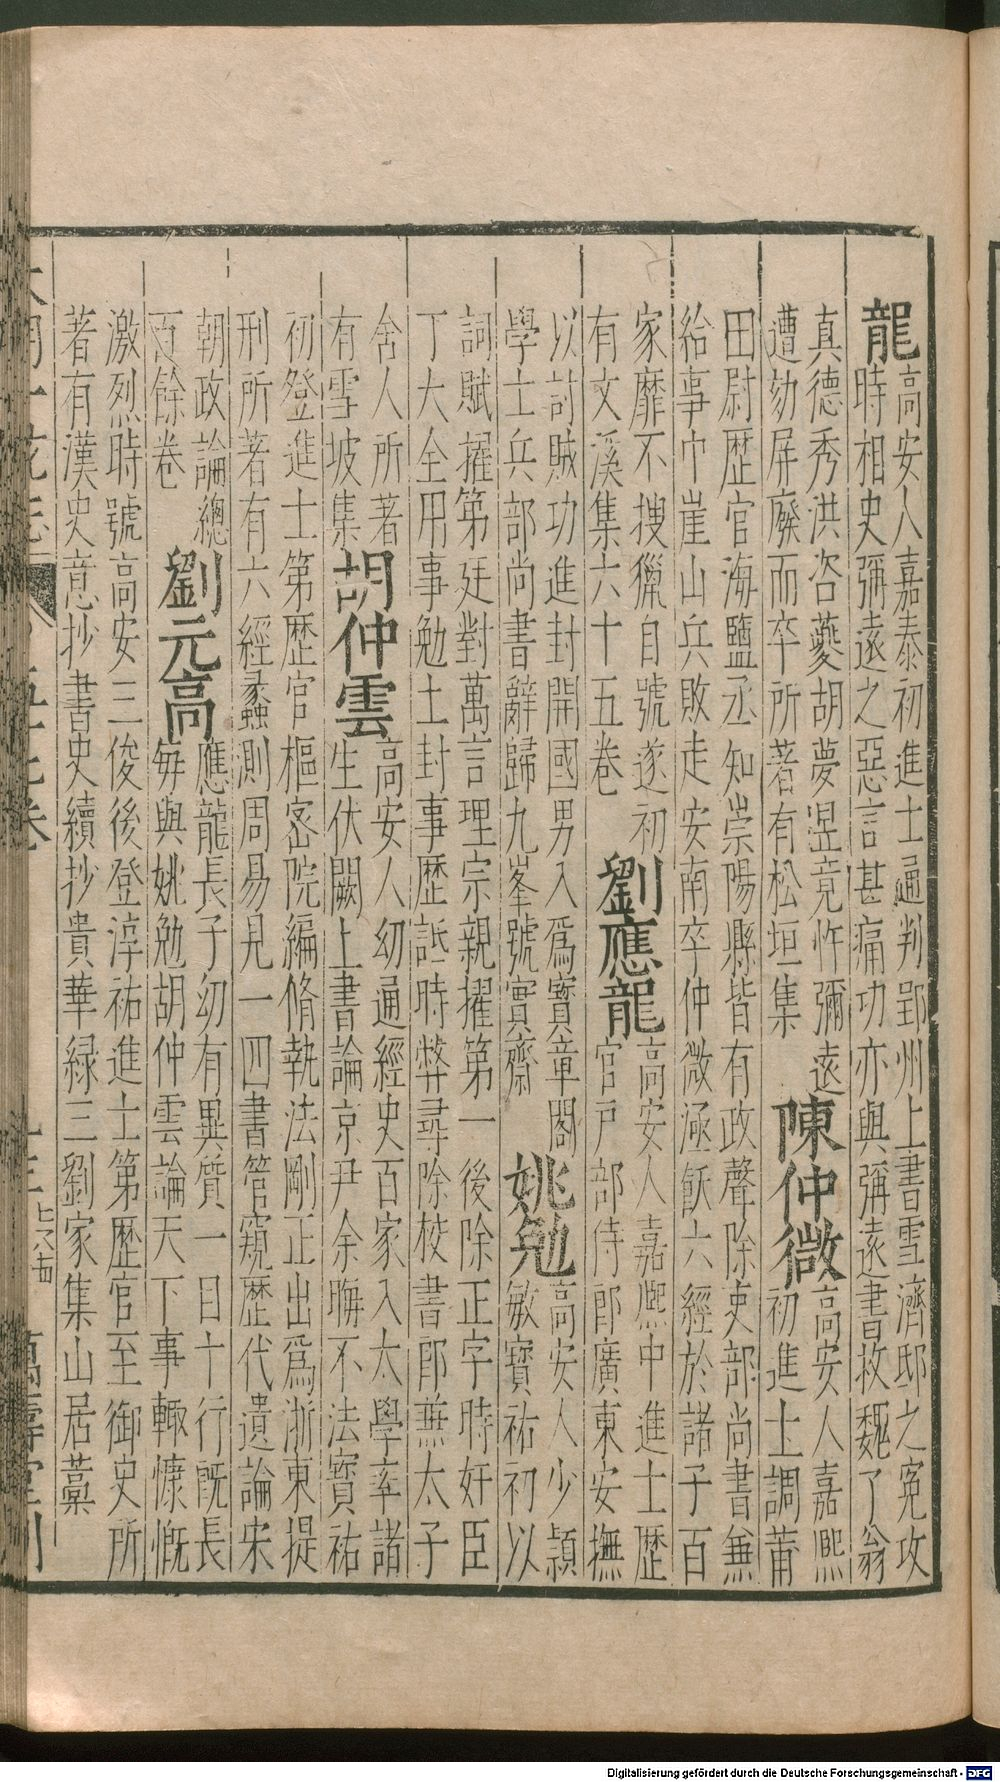 龍高安人嘉泰初進士通判郢州上書雪濟邸之冤攻
時相史彌遠之惡言甚痛切亦與彌遠書救魏了翁
真德秀洪咨夔胡夢昱竟忤彌遠
遭劾屏廢而卒所著有松垣集
陳仲微高安人嘉熙
初進士調莆
田尉歷官海鹽丞知崇陽縣皆有政聲除吏部尚書兼
給事中崖山兵敗走安南卒仲微涵飫六經於諸子百
家靡不搜獵自號遂初
有文溪集六十五卷
劉應龍高安人嘉熙中進士歷
官戶部侍郎廣東安撫
以討賊功進封開國男入爲寶章閣
學士兵部尚書辭歸九峯號實齋
姚勉高安人少頴
敏寶祐初以
詞賦擢第廷對萬言理宗親擢第一後除正字時奸臣
丁大全用事勉上封事歷詆時弊尋除校書郎兼太子
舍人所著
有雪坡集
胡仲雲高安人幼通經史百家入太學率諸
生伏闕上書論京尹余晦不法寶祐
初登進士第歷官樞密院編脩執法剛正出爲浙東提
刑所著有六經蠡測周易見一四書管窺歷代遺論宋
朝政論總
百餘卷
劉元高應龍長子幼有異質一目十行旣長
每與姚勉胡仲雲論天下事輙慷慨
激烈時號高安三俊後登淳祐進士第歷官至御史所
著有漢史意抄書史續抄貴華緑三劉家集山居藁
Digitalisierung gefördert durch die Deutsche Forschungsgemeinschaft - DFG